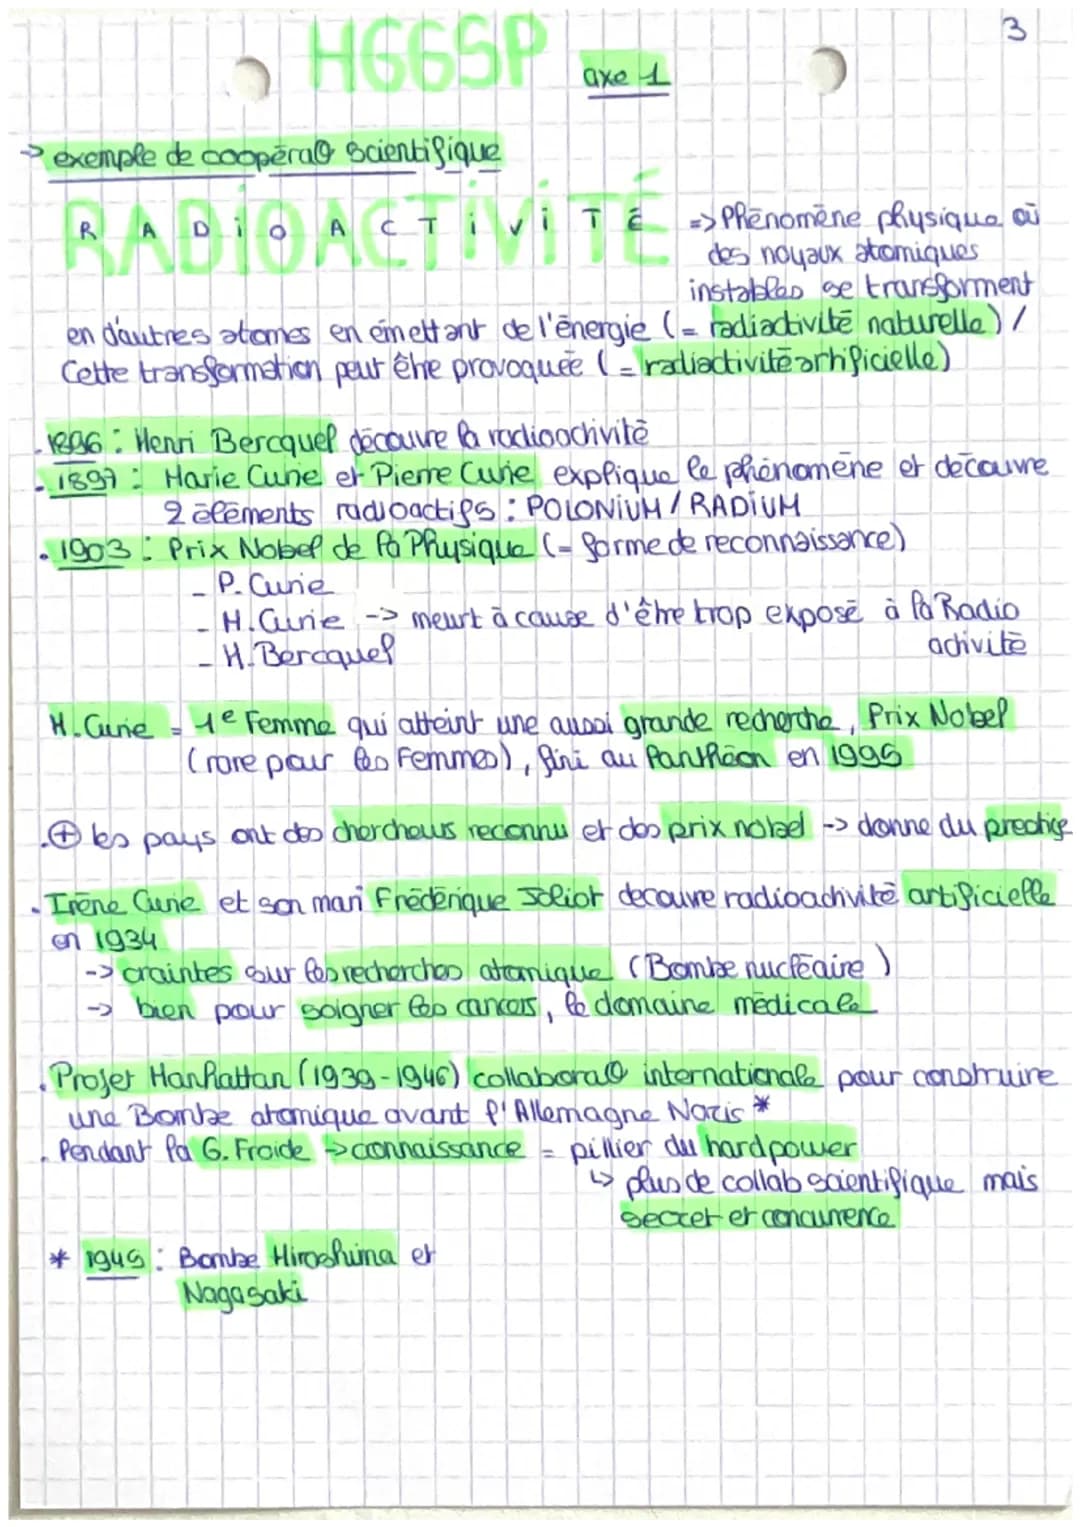 3
HGGSP axe 1
-> exemple de coopéra° scientifique
RADIOACTIVITÉ => Phénomène physique où
des noyaux atomiques
instables se transforment
en d'autres atomes en émettant de l'énergie (= radiactivité naturelle) /
Cette transformation peut être provoquée (= radiactivité artificielle)
. 1896 : Henri Bercquel découvre la radioactivité
. 1897 : Marie Curie et Pierre Curie explique le phénomène et découvre
2 éléments radioactifs : POLONIUM / RADIUM
. 1903 : Prix Nobel de la Physique (= forme de reconnaissance)
- P. Curie
- M. Curie -> meurt à cause d'être trop exposé à la Radio
activité
- H. Bercquel
M. Curie = 1e Femme qui atteint une aussi grande recherche, Prix Nobel
(rare pour les Femmes), fini au Panthéon en 1995
. ⊕ les pays ont des chercheurs reconnu et des prix nobel -> donne du prestige
. Irène Curie et son mari Fréderique Joliot decouvre radioactivité artificielle
en 1934
-> craintes sur les recherches atomique (Bombe nucléaire)
-> bien pour soigner les cancers, le domaine médicale
. Projet Manhattan (1939-1946) collabora° internationale pour construire
une Bombe atomique avant l'Allemagne Nazis *
. Pendant la G. Froide -> connaissance = pillier du hard power
↳ plus de collab scientifique mais
secret et concurrence
* 1945 : Bombe Hiroshima et
Nagasaki